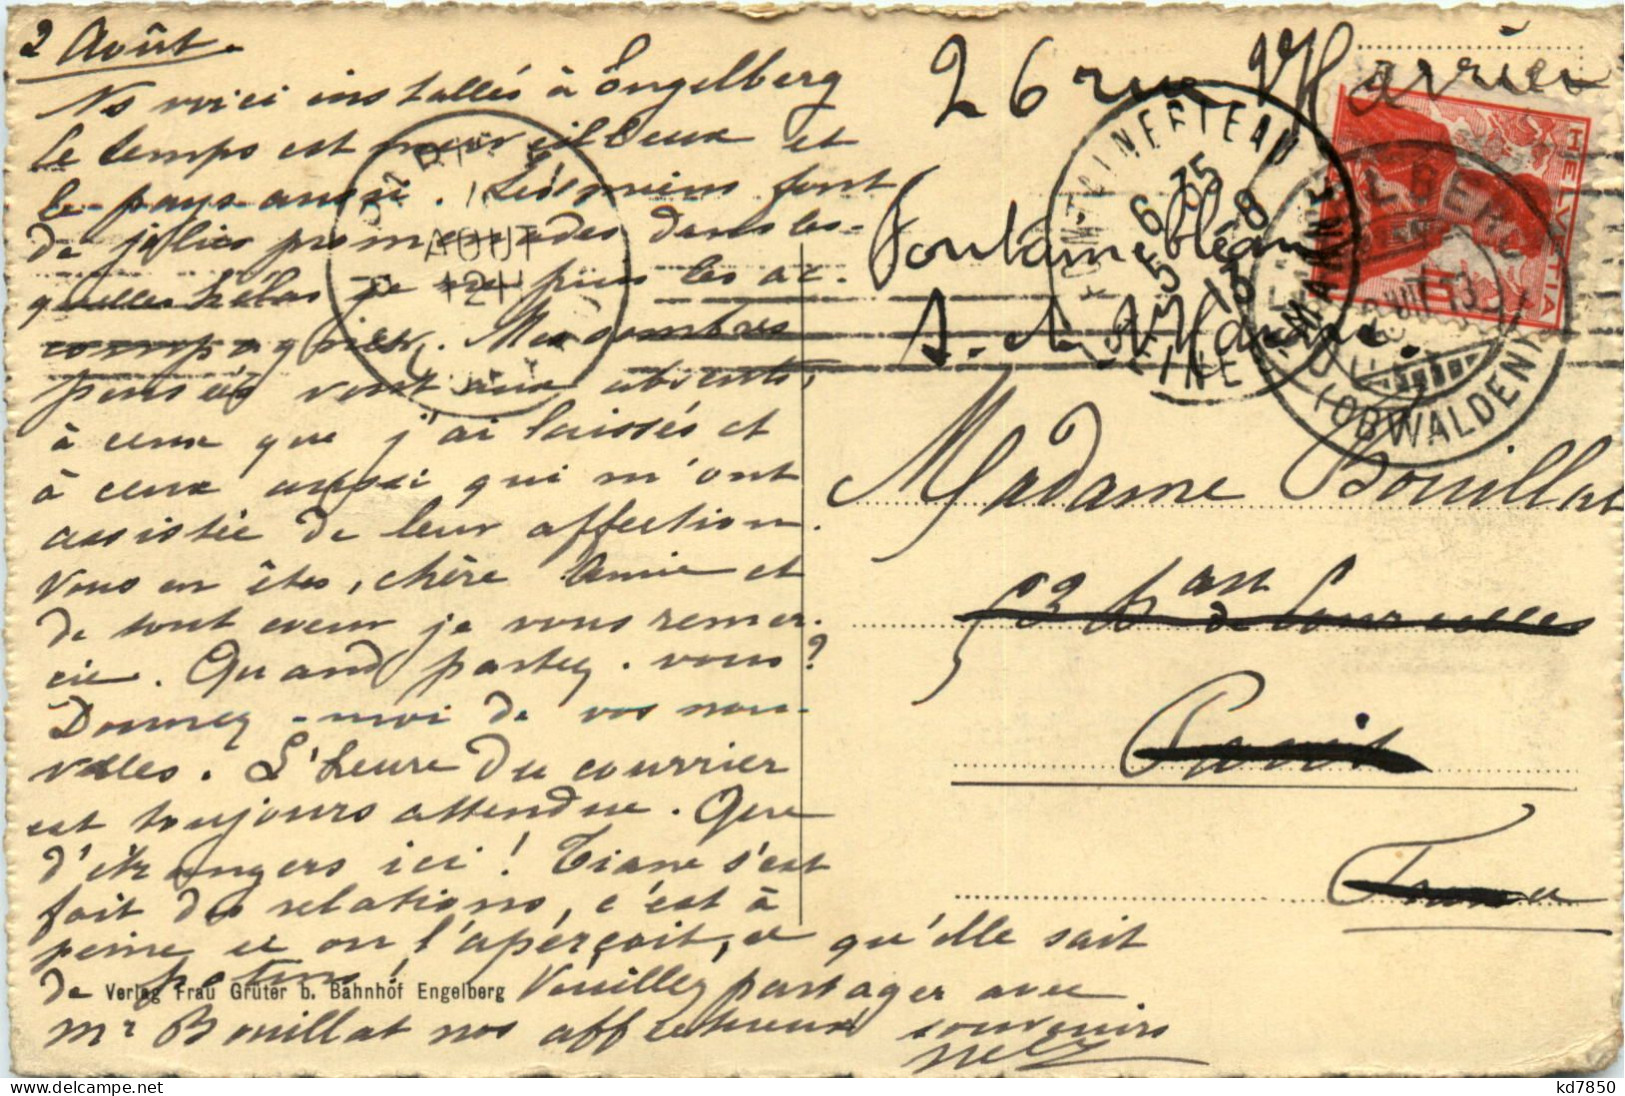 2 Août.
Ns voici installés à Engelberg
le temps est merveilleux et
le pays aussi. Les miens font
de jolies promenades dans les-
quelles hélas je ne puis les ac-
compagner. Mes sombres
pensées vont aux absents,
à ceux que j'ai laissés et
à ceux aussi qui m'ont
assistée de leur affection.
Vous en êtes, chère Amie et
de tout cœur je vous remer-
cie. Quand partez-vous?
Donnez-moi de vos nou-
velles. L'heure du courrier
est toujours attendue. Que
d'étrangers ici! Diane s'est
fait des relations, c'est à
peine si on l'aperçoit, et qu'elle sait
de Veuillez partager avec
Mr Bouillat nos affectueux souvenirs
Verlag Frau Grüter b. Bahnhof Engelberg
26 rue
Fontainebleau
S. et Marne.
Madame Bouillat
53 bd de Courcelles
Paris
France
AOUT
12H
6 35
5 8
13
SEINE
(OBWALDEN)
HELVETIA
10
kd7850